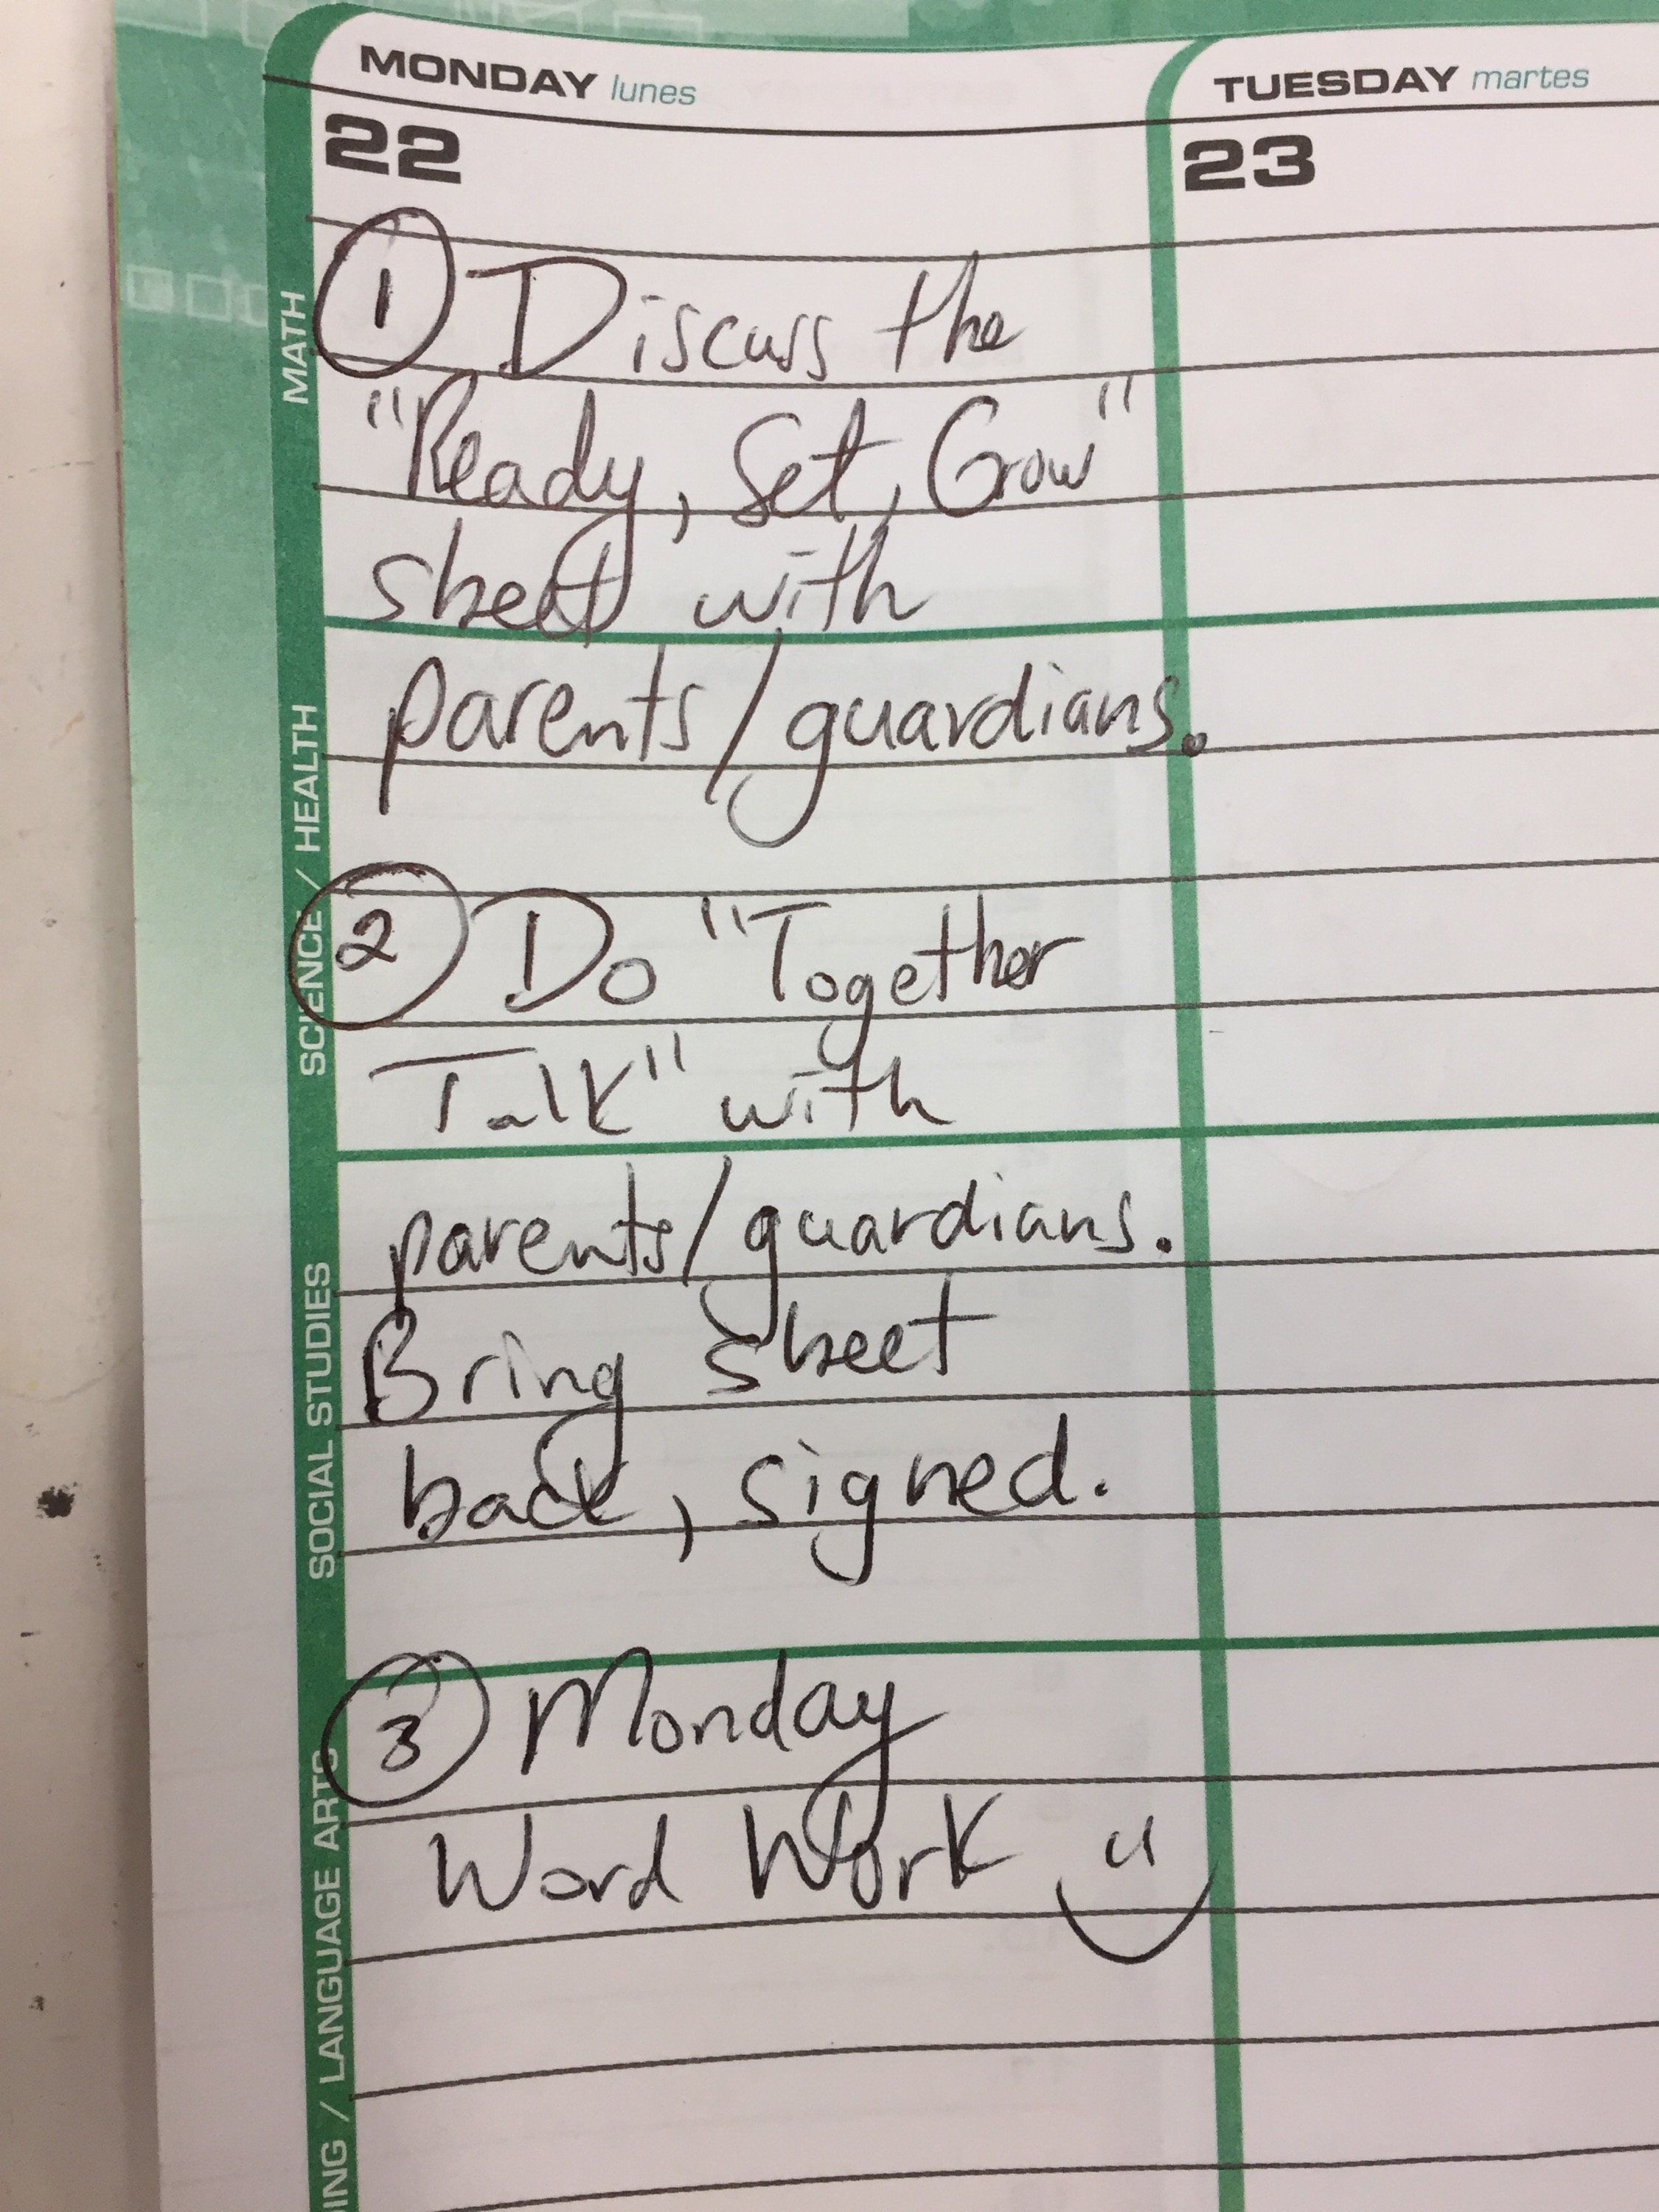 MONDAY lunes
TUESDAY martes
22
23
MATH
① Discuss the
"Ready, Set, Grow"
sheet with
parents/guardians.
SCIENCE / HEALTH
② Do "Together
Talk" with
parents/guardians.
SOCIAL STUDIES
Bring sheet
back, signed.
③ Monday
Word Work
/ LANGUAGE ARTS